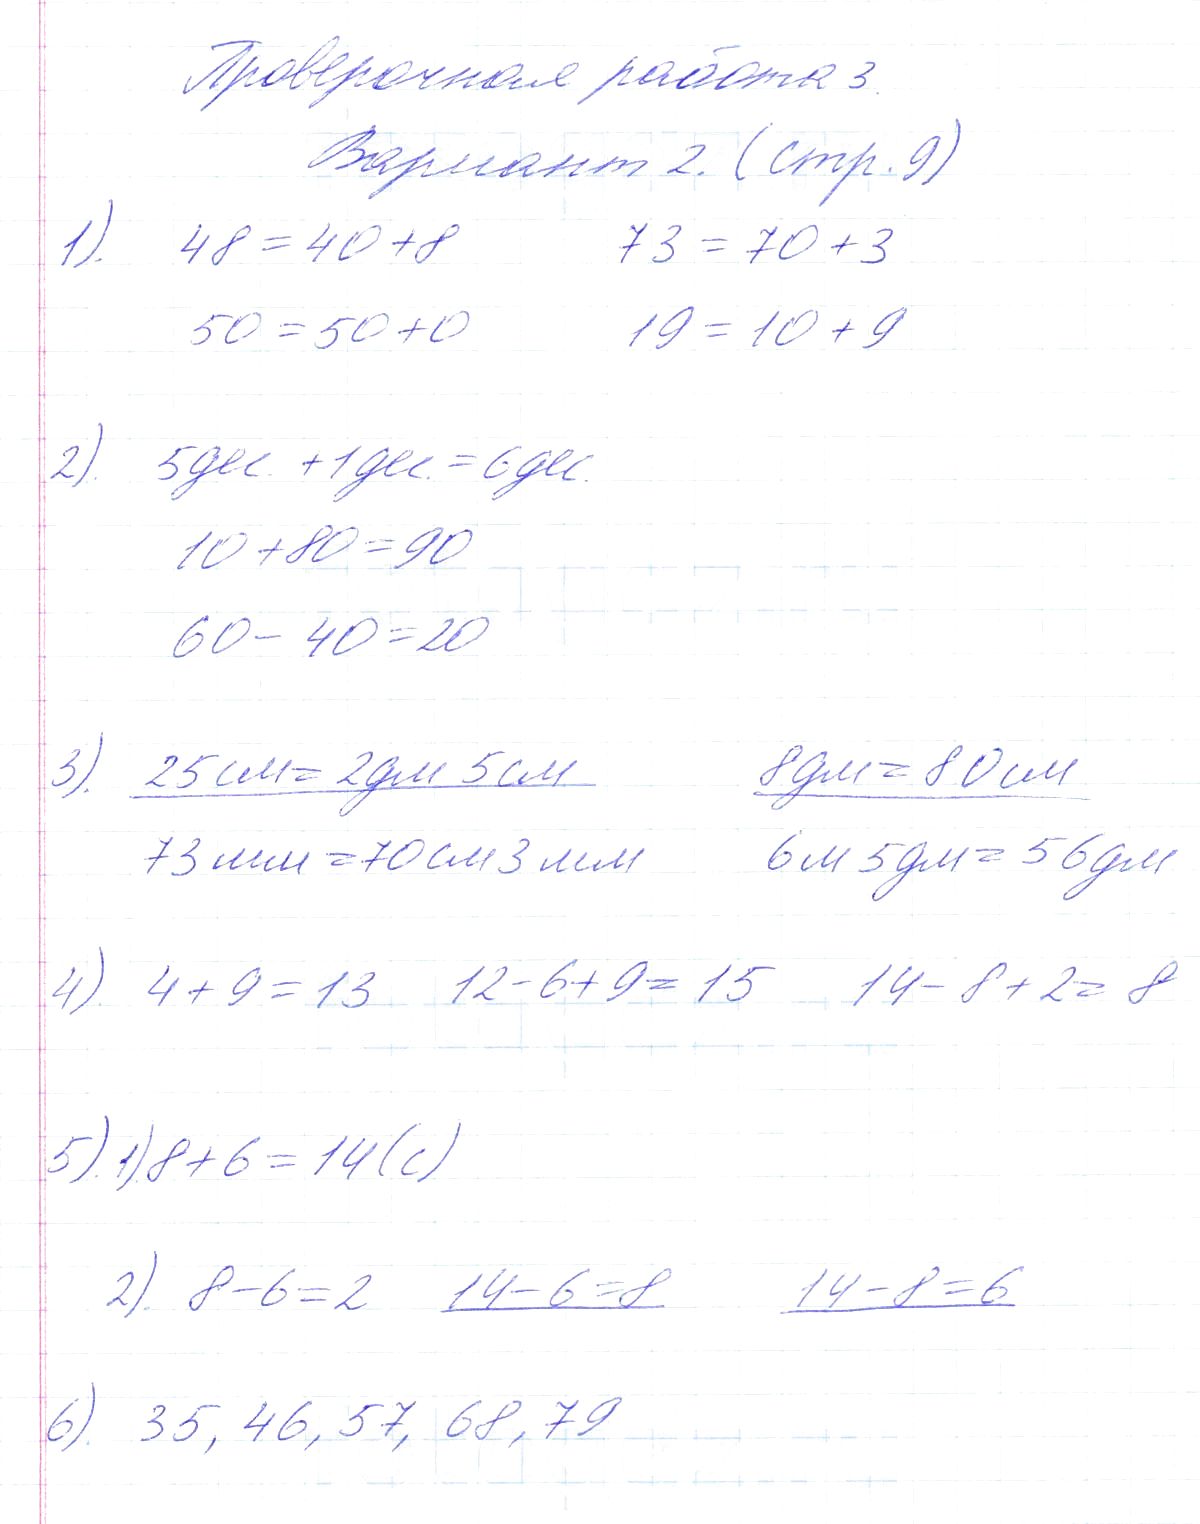 Проверочная работа 3.
Вариант 2. (стр. 9)
1). 48 = 40 + 8 73 = 70 + 3
50 = 50 + 0 19 = 10 + 9
2). 5 дес. + 1 дес. = 6 дес.
10 + 80 = 90
60 - 40 = 20
3). 25 см = 2 дм 5 см 8 дм = 80 см
73 мм = 70 см 3 мм 6 м 5 дм = 56 дм
4). 4 + 9 = 13 12 - 6 + 9 = 15 14 - 8 + 2 = 8
5). 1) 8 + 6 = 14 (с)
2). 8 - 6 = 2 14 - 6 = 8 14 - 8 = 6
6). 35, 46, 57, 68, 79